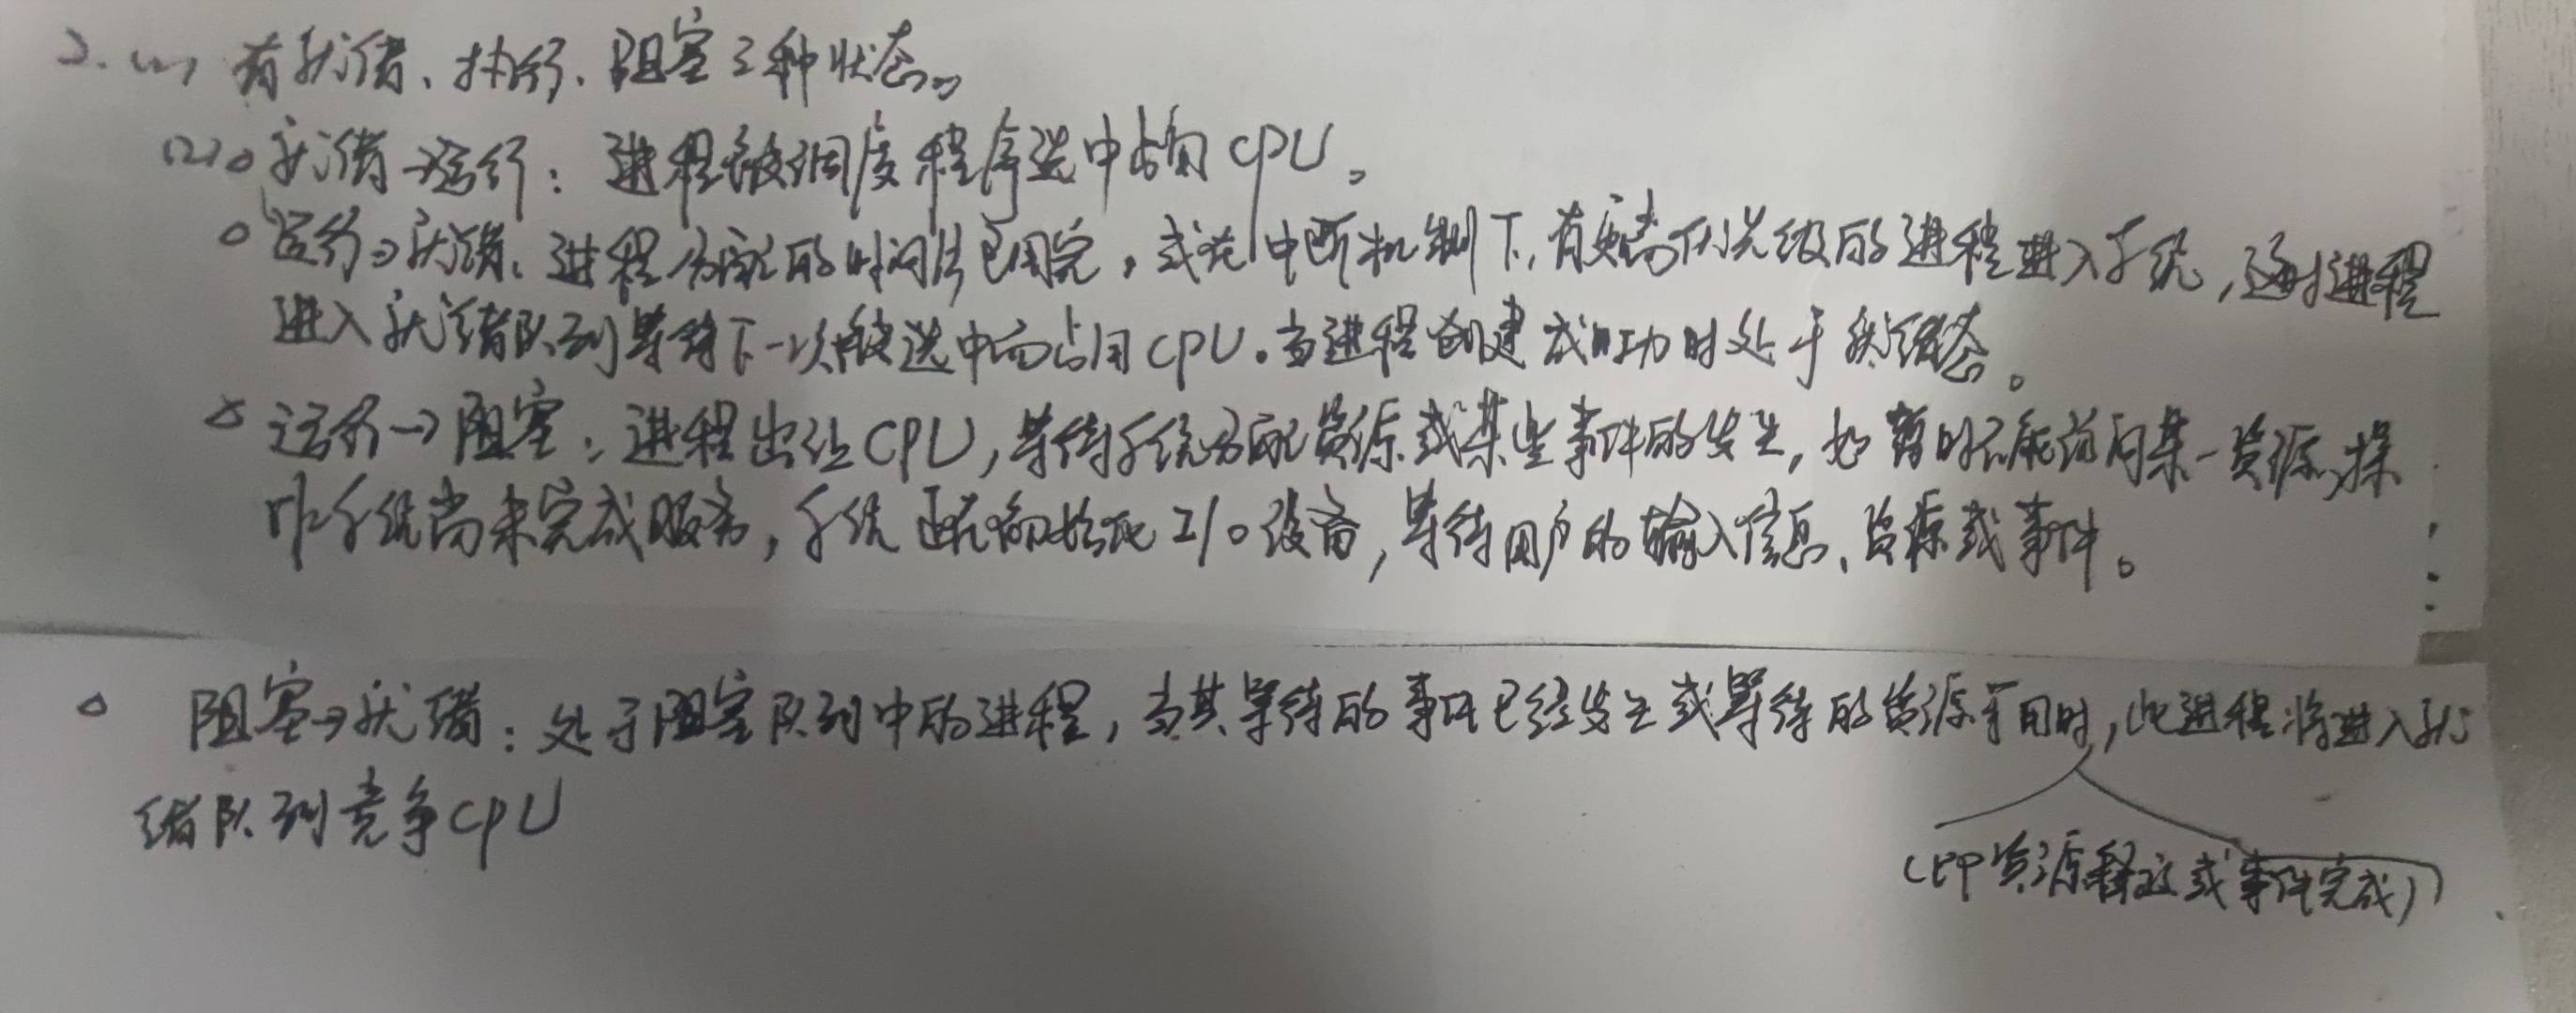 2. (1) 有就绪、执行、阻塞三种状态。
(2) 。就绪→运行：进程被调度程序选中占用CPU。
。运行→就绪：进程分配的时间片已用完，或在中断机制下，有更高优先级的进程进入系统，这时进程
进入就绪队列等待下一次被选中而占用CPU。当进程创建成功时处于就绪态。
。运行→阻塞：进程出让CPU，等待系统分配资源或某些事件的发生，如暂时不能访问某一资源，操
作系统尚未完成服务，系统正在初始化I/O设备，等待用户的输入信息、资源或事件。
。阻塞→就绪：处于阻塞队列中的进程，当其等待的事件已经发生或等待的资源可用时，此进程将进入就
绪队列竞争CPU
（即资源释放或事件完成）